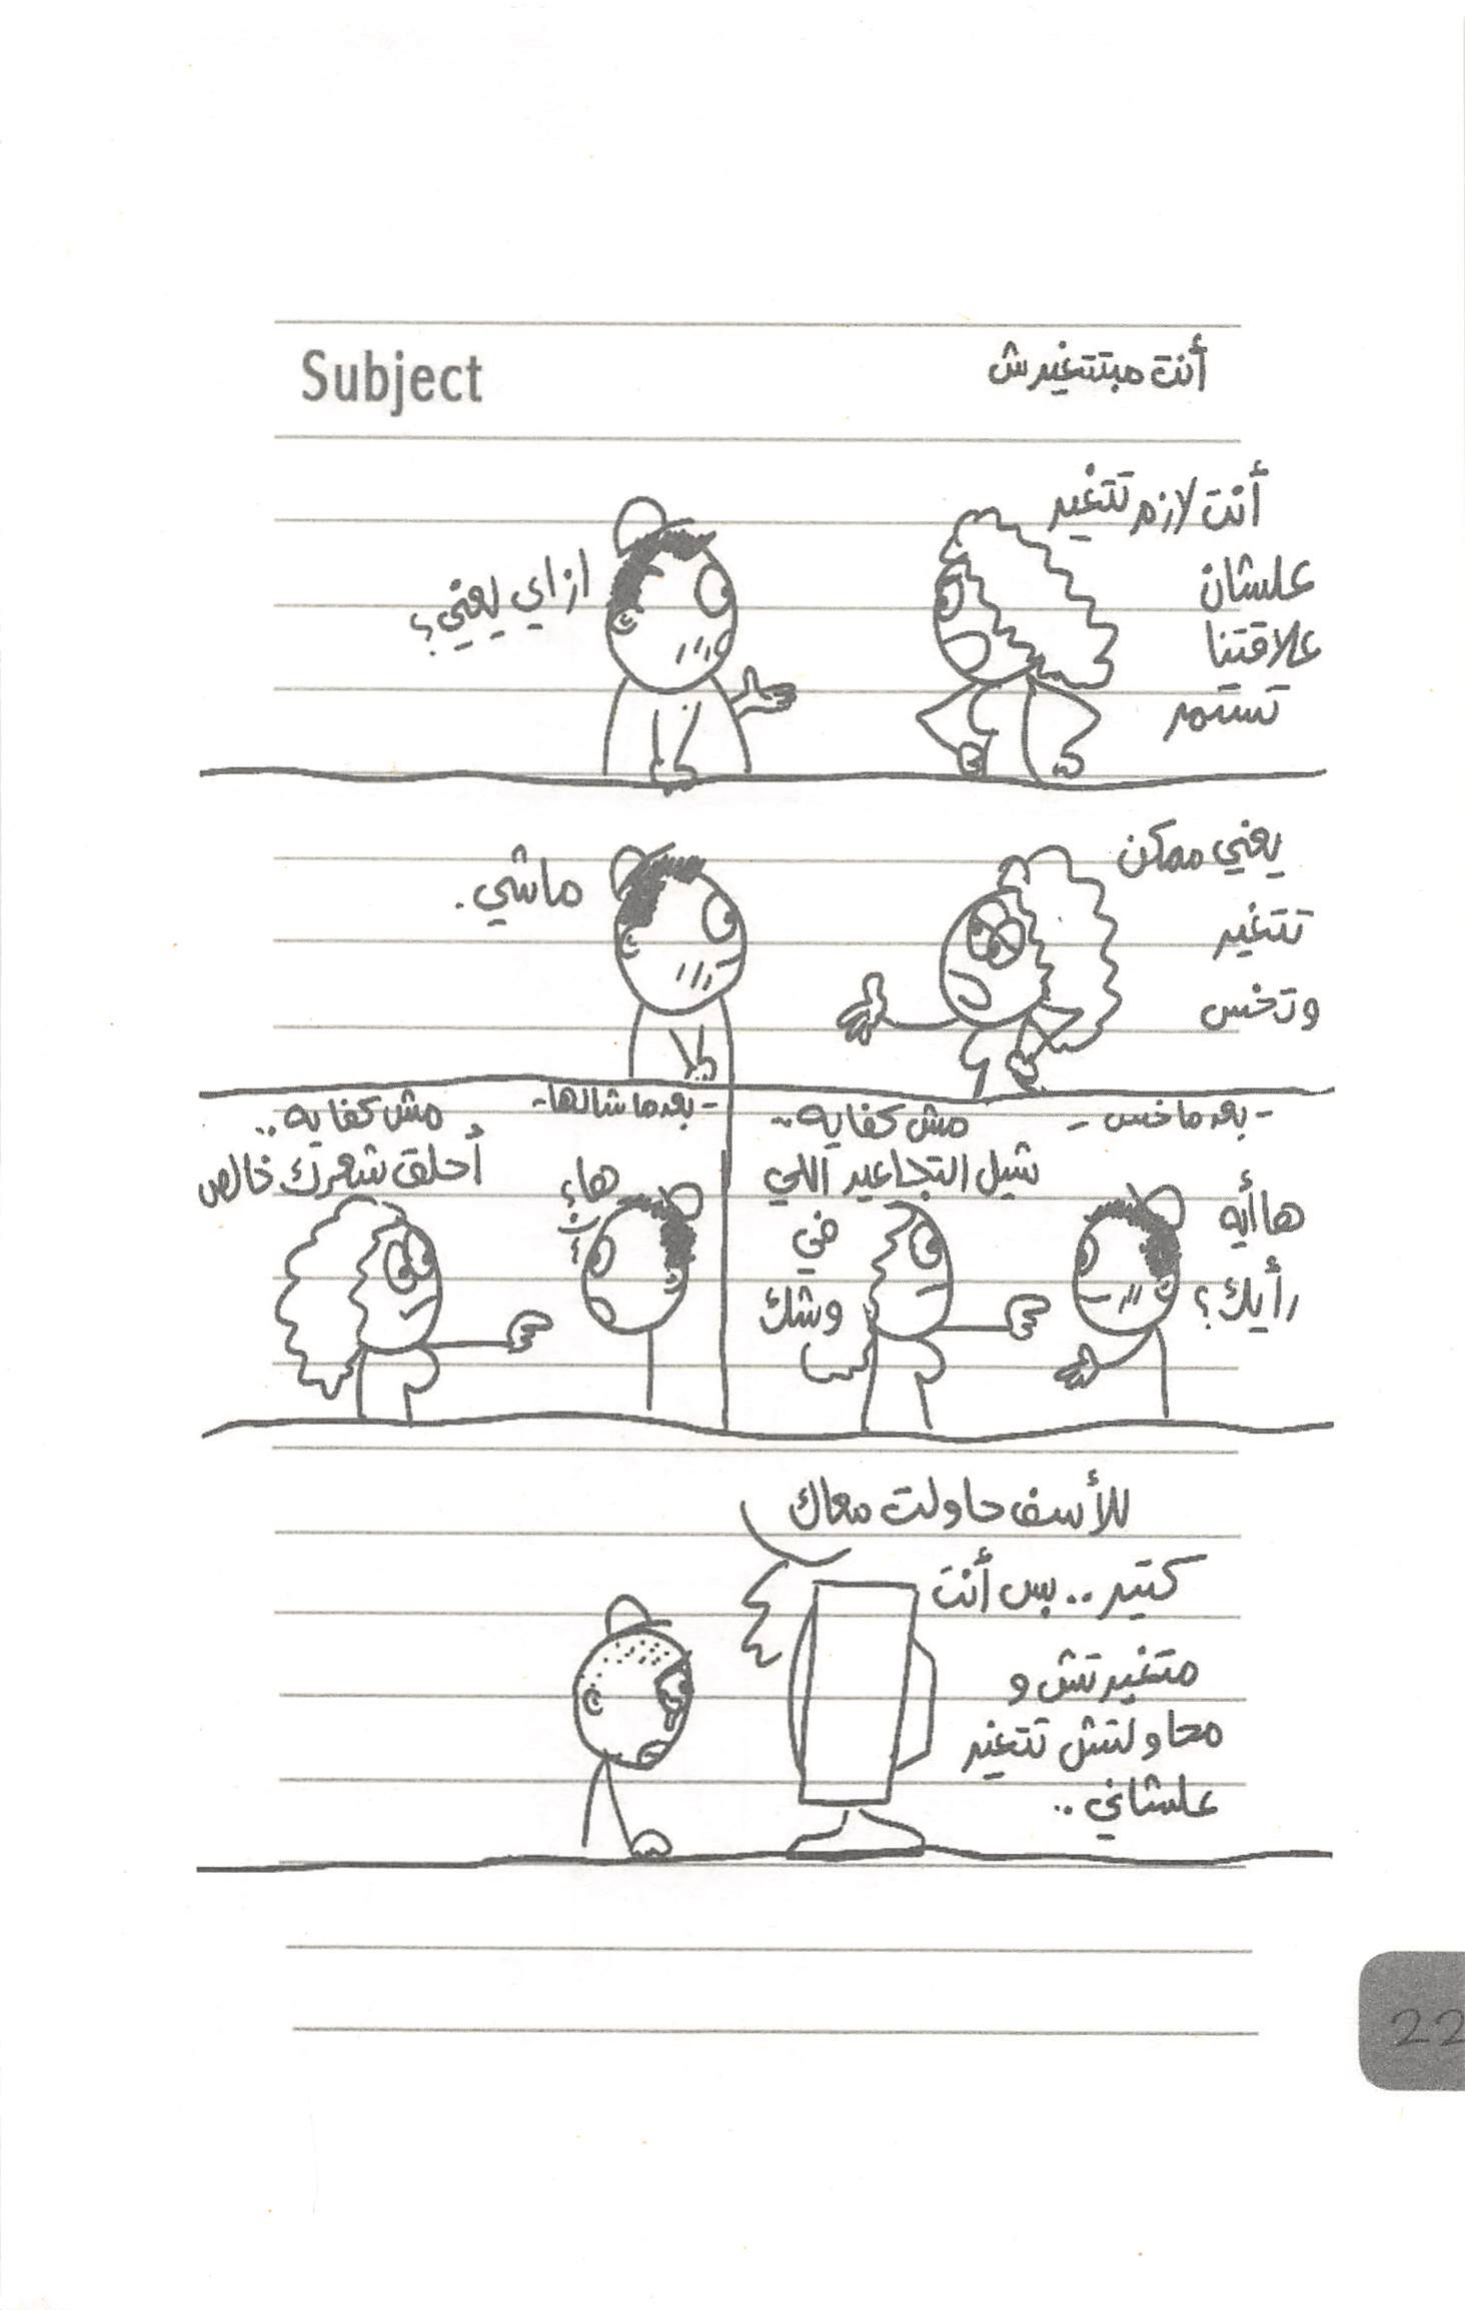 Subject
أنت مبتتغيرش
أنت لازم تتغير
علشان
علاقتنا
تستمر
ازاي يعني؟
يعني ممكن
تتغير
وتخس
ماشي.
- بعد ما خس -
ها أيه
رأيك؟
مش كفايه..
شيل التجاعيد اللي
في
وشك
- بعد ما شالها -
ها؟
مش كفايه..
أحلق شعرك خالص
للأسف حاولت معاك
كتير.. بس أنت
متغيرتش و
محاولتش تتغير
علشاني..
22